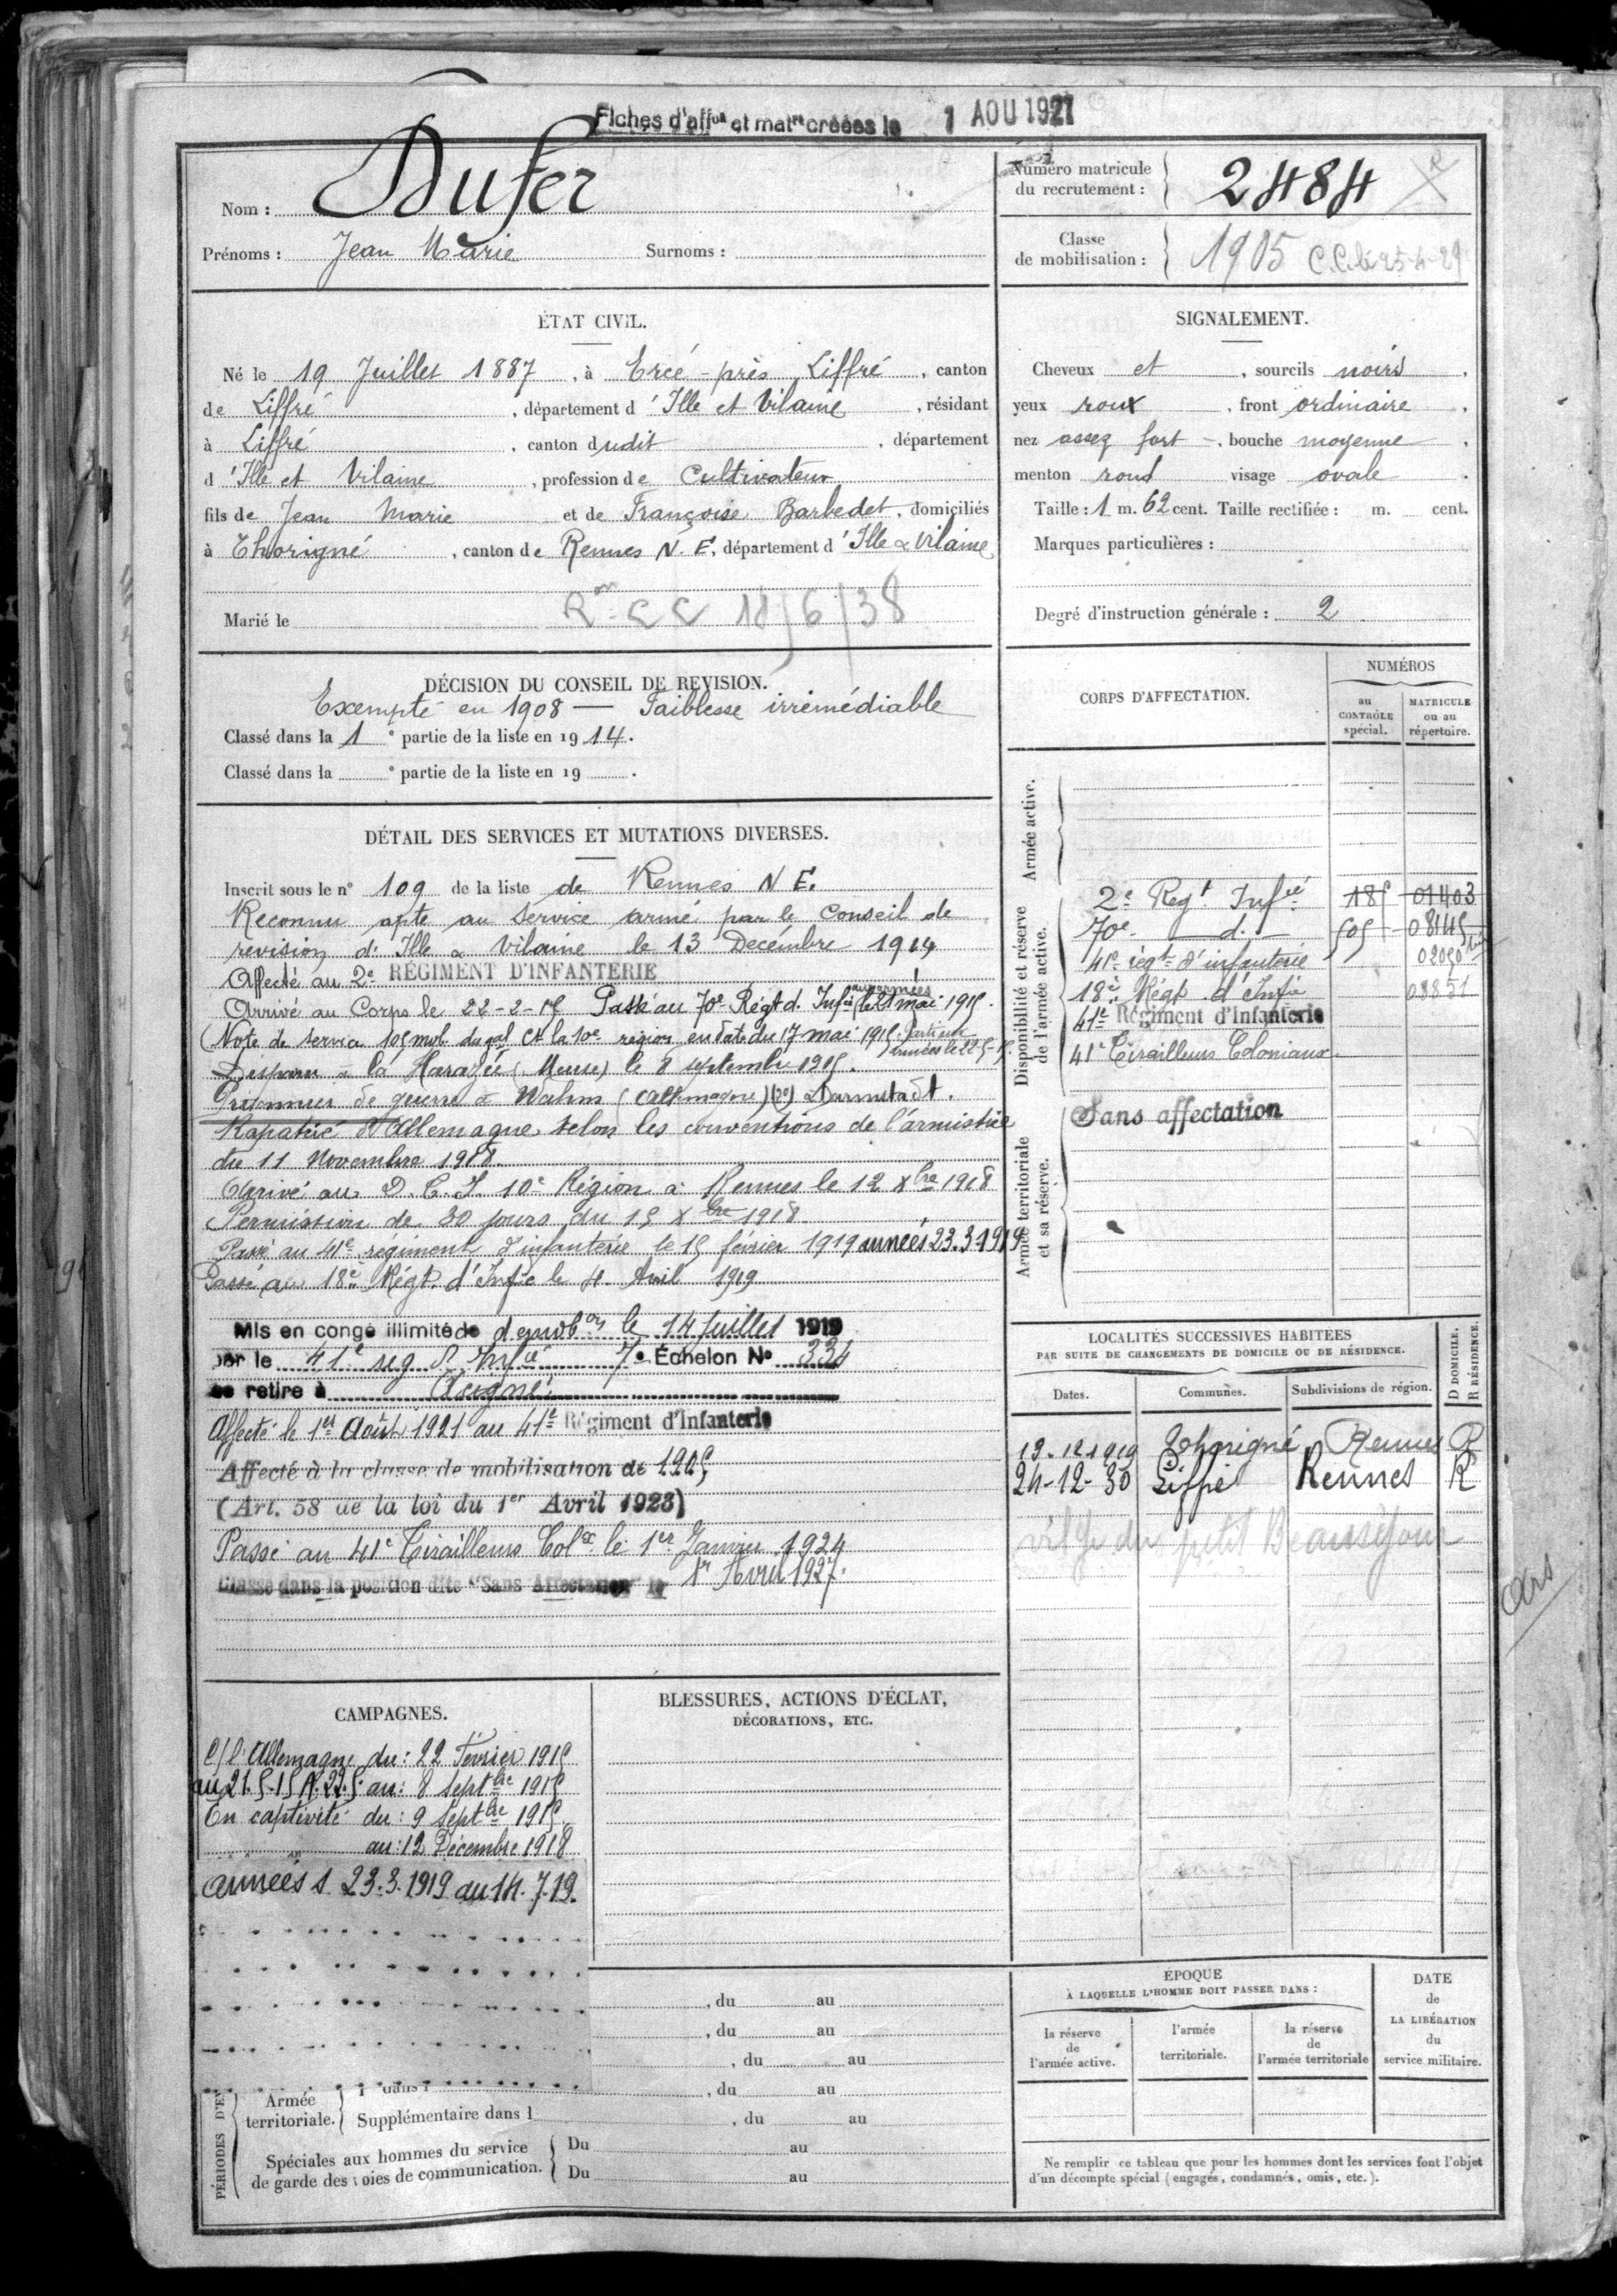 Fiches d'affon et matre créées le 1 AOU 1921
Nom : Dufer
Prénoms : Jean Marie Surnoms :
Numéro matricule
du recrutement : 2484
Classe
de mobilisation : 1905
ÉTAT CIVIL.
Né le 19 Juillet 1887, à Ercé-près Liffré, canton
de Liffré, département d'Ille et Vilaine, résidant
à Liffré, canton dudit, département
d'Ille et Vilaine, profession de Cultivateur
fils de Jean Marie et de Françoise Barbedet, domiciliés
à Thorigné, canton de Rennes N. E. département d'Ille & Vilaine
Marié le
18/6/38
SIGNALEMENT.
Cheveux et, sourcils noirs,
yeux roux, front ordinaire,
nez assez fort, bouche moyenne,
menton rond visage ovale.
Taille : 1 m. 62 cent. Taille rectifiée : m. cent.
Marques particulières :
Degré d'instruction générale : 2
DÉCISION DU CONSEIL DE REVISION.
Exempté en 1908 — Faiblesse irrémédiable
Classé dans la 1e partie de la liste en 1914.
Classé dans la e partie de la liste en 19 .
DÉTAIL DES SERVICES ET MUTATIONS DIVERSES.
Inscrit sous le n° 109 de la liste de Rennes N E.
Reconnu apte au service armé par le Conseil de
revision d'Ille & Vilaine le 13 Décembre 1914
Affecté au 2e RÉGIMENT D'INFANTERIE
Arrivé au Corps le 22-2-15 Passé au 70e Régt d'Infie aux armées le 21 mai 1915.
(Note de service 105 mob. du gal Ct la 10e région en date du 17 mai 1915. Parti aux
armées le 22-5-15.
Disparu à la Harazée (Meuse) le 8 septembre 1915.
Prisonnier de guerre à Wahm (Allemagne) (2e) à Darmstadt.
Rapatrié d'Allemagne selon les conventions de l'armistice
du 11 Novembre 1918.
Arrivé au D. C. I. 10e Région à Rennes le 12 Xbre 1918
Permission de 30 jours du 15 Xbre 1918.
Passé au 41e régiment d'infanterie le 15 février 1919 armées 23.3.1919
Passé au 18e Régt d'Infie le 4 Avril 1919
Mis en congé illimité de démobon le 14 Juillet 1919
par le 41e reg d'Infie 7e Échelon No 334
se retire à Acigné
Affecté le 1er Août 1921 au 41e Régiment d'Infanterie
Affecté à la classe de mobilisation de 1905
(Art. 58 de la loi du 1er Avril 1923)
Passé au 41e Tirailleurs Colx le 1er Janvier 1924
Classé dans la position dite "Sans Affectation" le 1er Avril 1927.
CORPS D'AFFECTATION.
NUMÉROS
au
CONTRÔLE
spécial.
MATRICULE
ou au
répertoire.
Armée active.
Disponibilité et réserve
de l'armée active.
2e Regt Infie 185 01403
70e d. 505 08145
41e régt d'infanterie 02050 bis
18e Régt d'Infie 08851
41e Régiment d'Infanterie
41e Tirailleurs Coloniaux.
Armée territoriale
et sa réserve.
Sans affectation
LOCALITÉS SUCCESSIVES HABITÉES
PAR SUITE DE CHANGEMENTS DE DOMICILE OU DE RÉSIDENCE.
Dates. Communes. Subdivisions de région. D DOMICILE. R RÉSIDENCE.
19-12-1919 Thorigné Rennes R
24-12-30 Liffré Rennes R
du petit Beauséjour
Ars
CAMPAGNES.
C/ l'Allemagne du : 22 Février 1915
au 21.5.15 A. 22.5. au : 8 Septbre 1915
En captivité du : 9 Septbre 1915
au : 12 Décembre 1918
armées 23.3.1919 au 14.7.19.
BLESSURES, ACTIONS D'ÉCLAT,
DÉCORATIONS, ETC.
, du au
, du au
, du au
, du au
PÉRIODES D'EX
Armée
territoriale.
Supplémentaire dans l , du au
Spéciales aux hommes du service
de garde des voies de communication.
Du au
Du au
ÉPOQUE
À LAQUELLE L'HOMME DOIT PASSER DANS :
la réserve
de
l'armée active.
l'armée
territoriale.
la réserve
de
l'armée territoriale
DATE
de
LA LIBÉRATION
du
service militaire.
Ne remplir ce tableau que pour les hommes dont les services font l'objet
d'un décompte spécial (engagés, condamnés, omis, etc.).